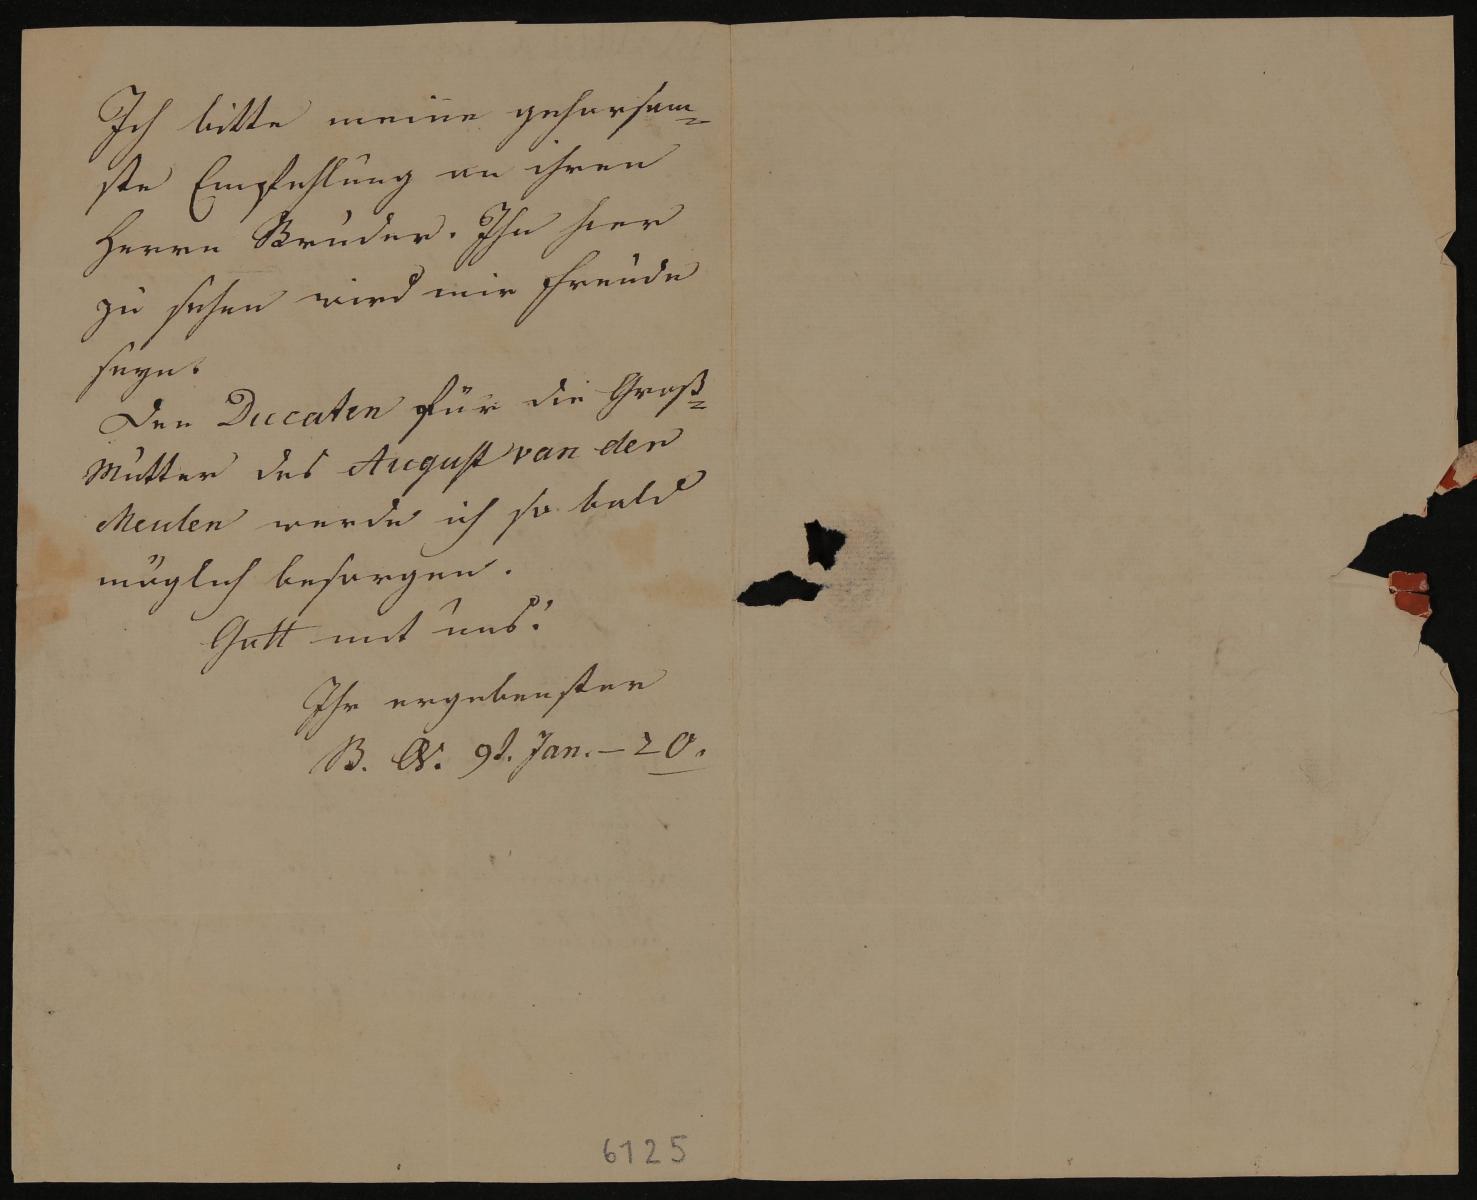 Ich bitte meine gehorsam=
ste Empfehlung an ihren
Herrn Bruder. Ihn hier
zu sehen wird mir Freude
seyn.
Den Ducaten für die Groß=
Mutter des August van der
Meulen werde ich so bald
möglich besorgen.
Gott mit uns!
Ihr ergebenster
B. Jan. – 20.
6125